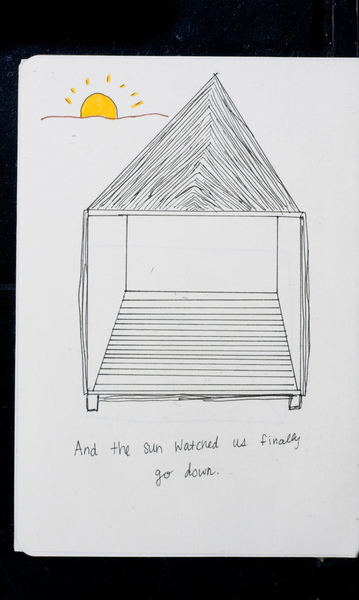 And the sun watched us finally
go down.